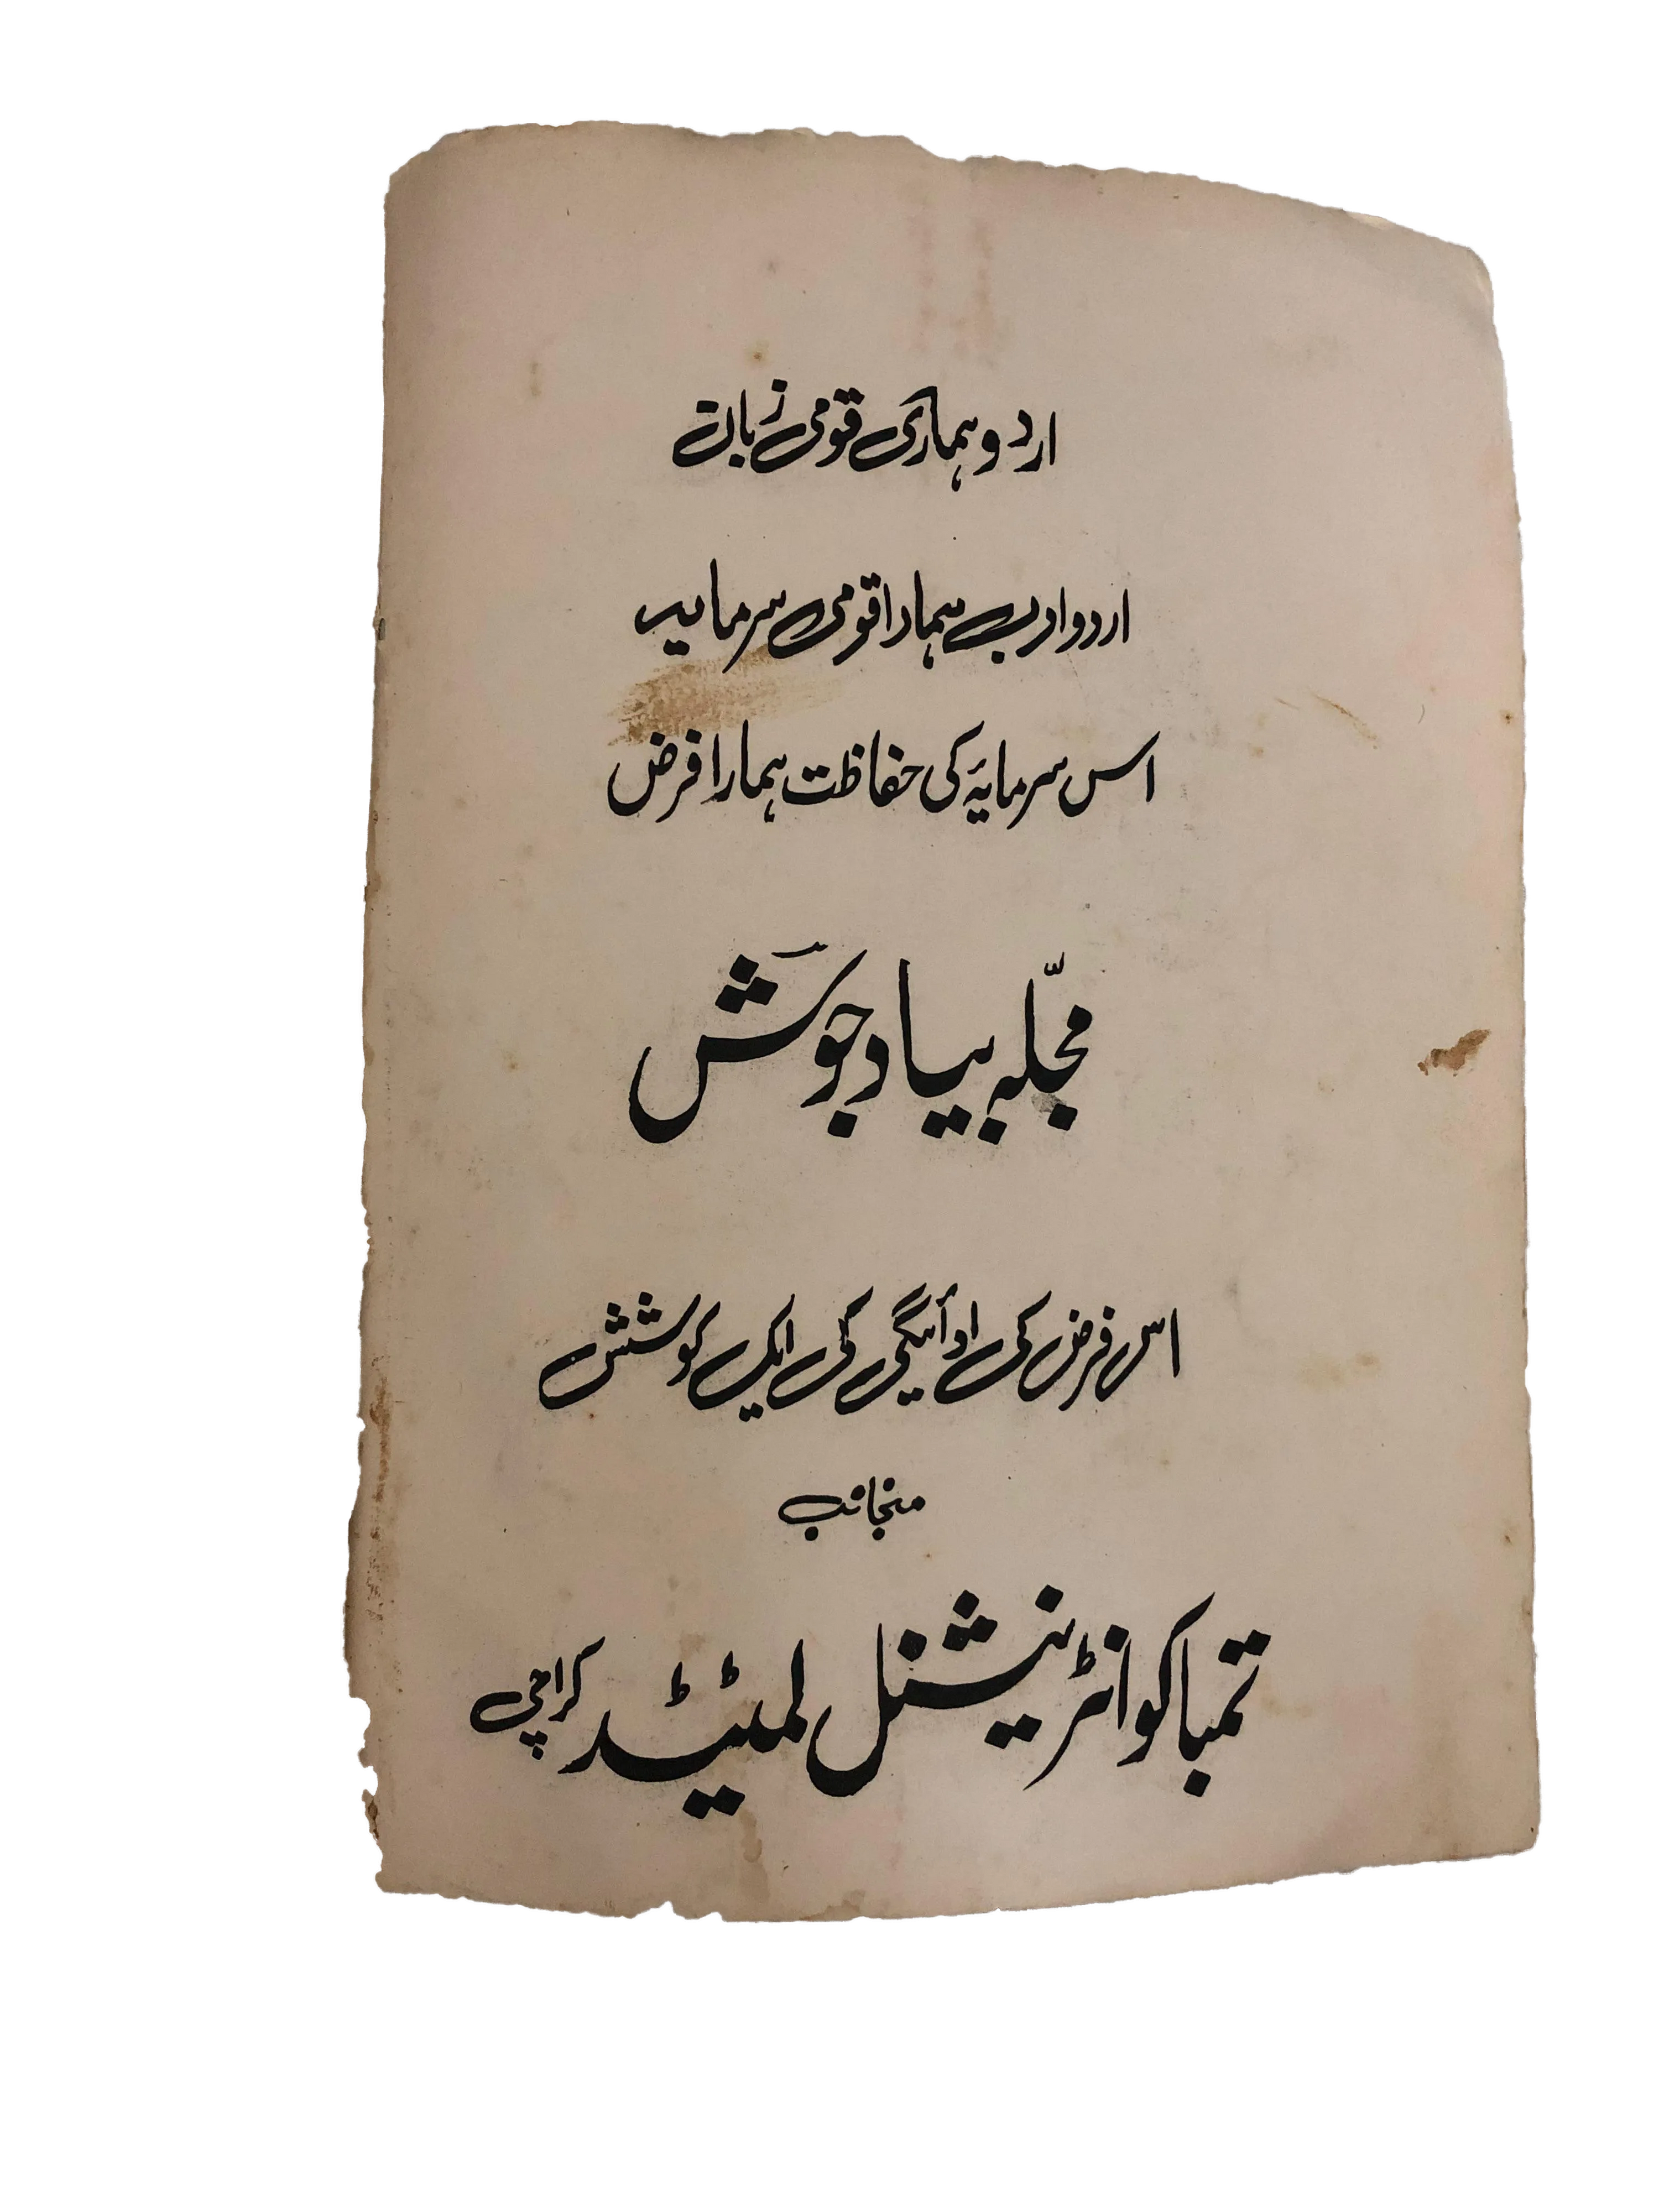 اردو ہماری قومی زبان
اردو ادب ہمارا قومی سرمایہ
اس سرمایۂ کی حفاظت ہمارا فرض
مجلّہ بیاد جوشؔ
اس فرض کی ادائیگی کی ایک کوشش
منجانب
تمباکو انٹرنیشنل لمیٹڈ کراچی